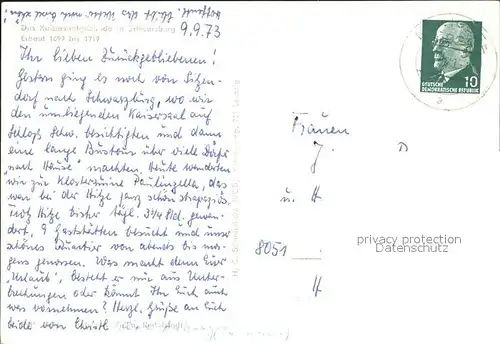 hoffentl. ist das Wetter auch schön!
9.9.73
Das Kaisersaalgebäude in Schwarzburg
Erbaut 1699 bis 1719
Ihr lieben Zurückgebliebenen!
Gestern ging es noch von Sitzen-
dorf nach Schwarzburg, wo wir
den umliegenden Kaisersaal auf
Schloß Schw. besichtigten und dann
eine lange Bustour über viele Dörfer
"nach Hause" machten. Heute wanderten
wir zur Klosterruine Paulinzella, das
war bei der Hitze ganz schön strapaziös.
Trotz Hitze bisher tägl. 3-4 Std. gewan-
dert, 9 Gaststätten besucht und unser
schönes Quartier von abends bis mor-
gens genossen. Was macht denn Euer
"Urlaub", besteht er nur aus Unter-
brechungen oder könnt Ihr Euch auch
was vornehmen? Herzl. Grüße an Euch
beide von Christl
DEUTSCHE
DEMOKRATISCHE REPUBLIK
10
Frauen
J.
D
u. H
8051
H
privacy protection
Datenschutz